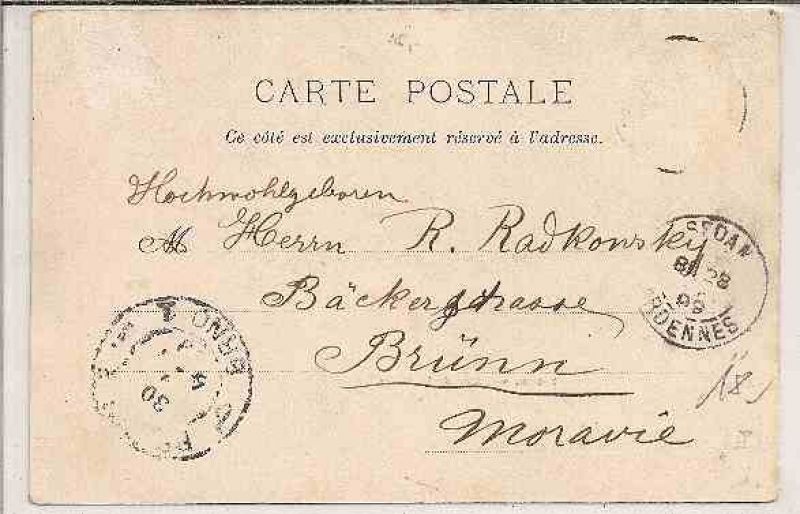 CARTE POSTALE
Ce côté est exclusivement réservé à l'adresse.
Hochwohlgeboren
M Herrn R. Radkowsky
Bäckerstrasse
Brünn
Moravie
SEDAN
28
99
ARDENNES
BRNO
30